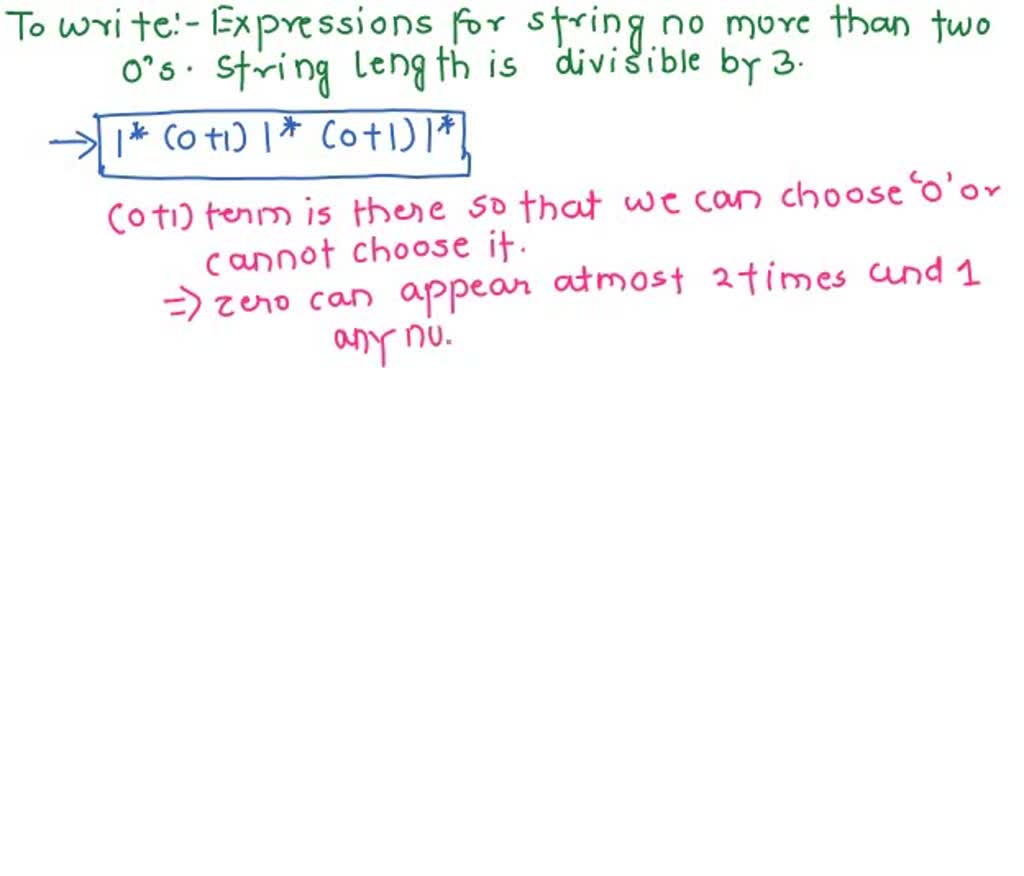 To write:- Expressions for string no more than two
0's. string length is divisible by 3.
→ 1* (0+1) 1* (0+1) 1*
(0+1) term is there so that we can choose '0' or
cannot choose it.
⇒ zero can appear atmost 2 times and 1
any no.